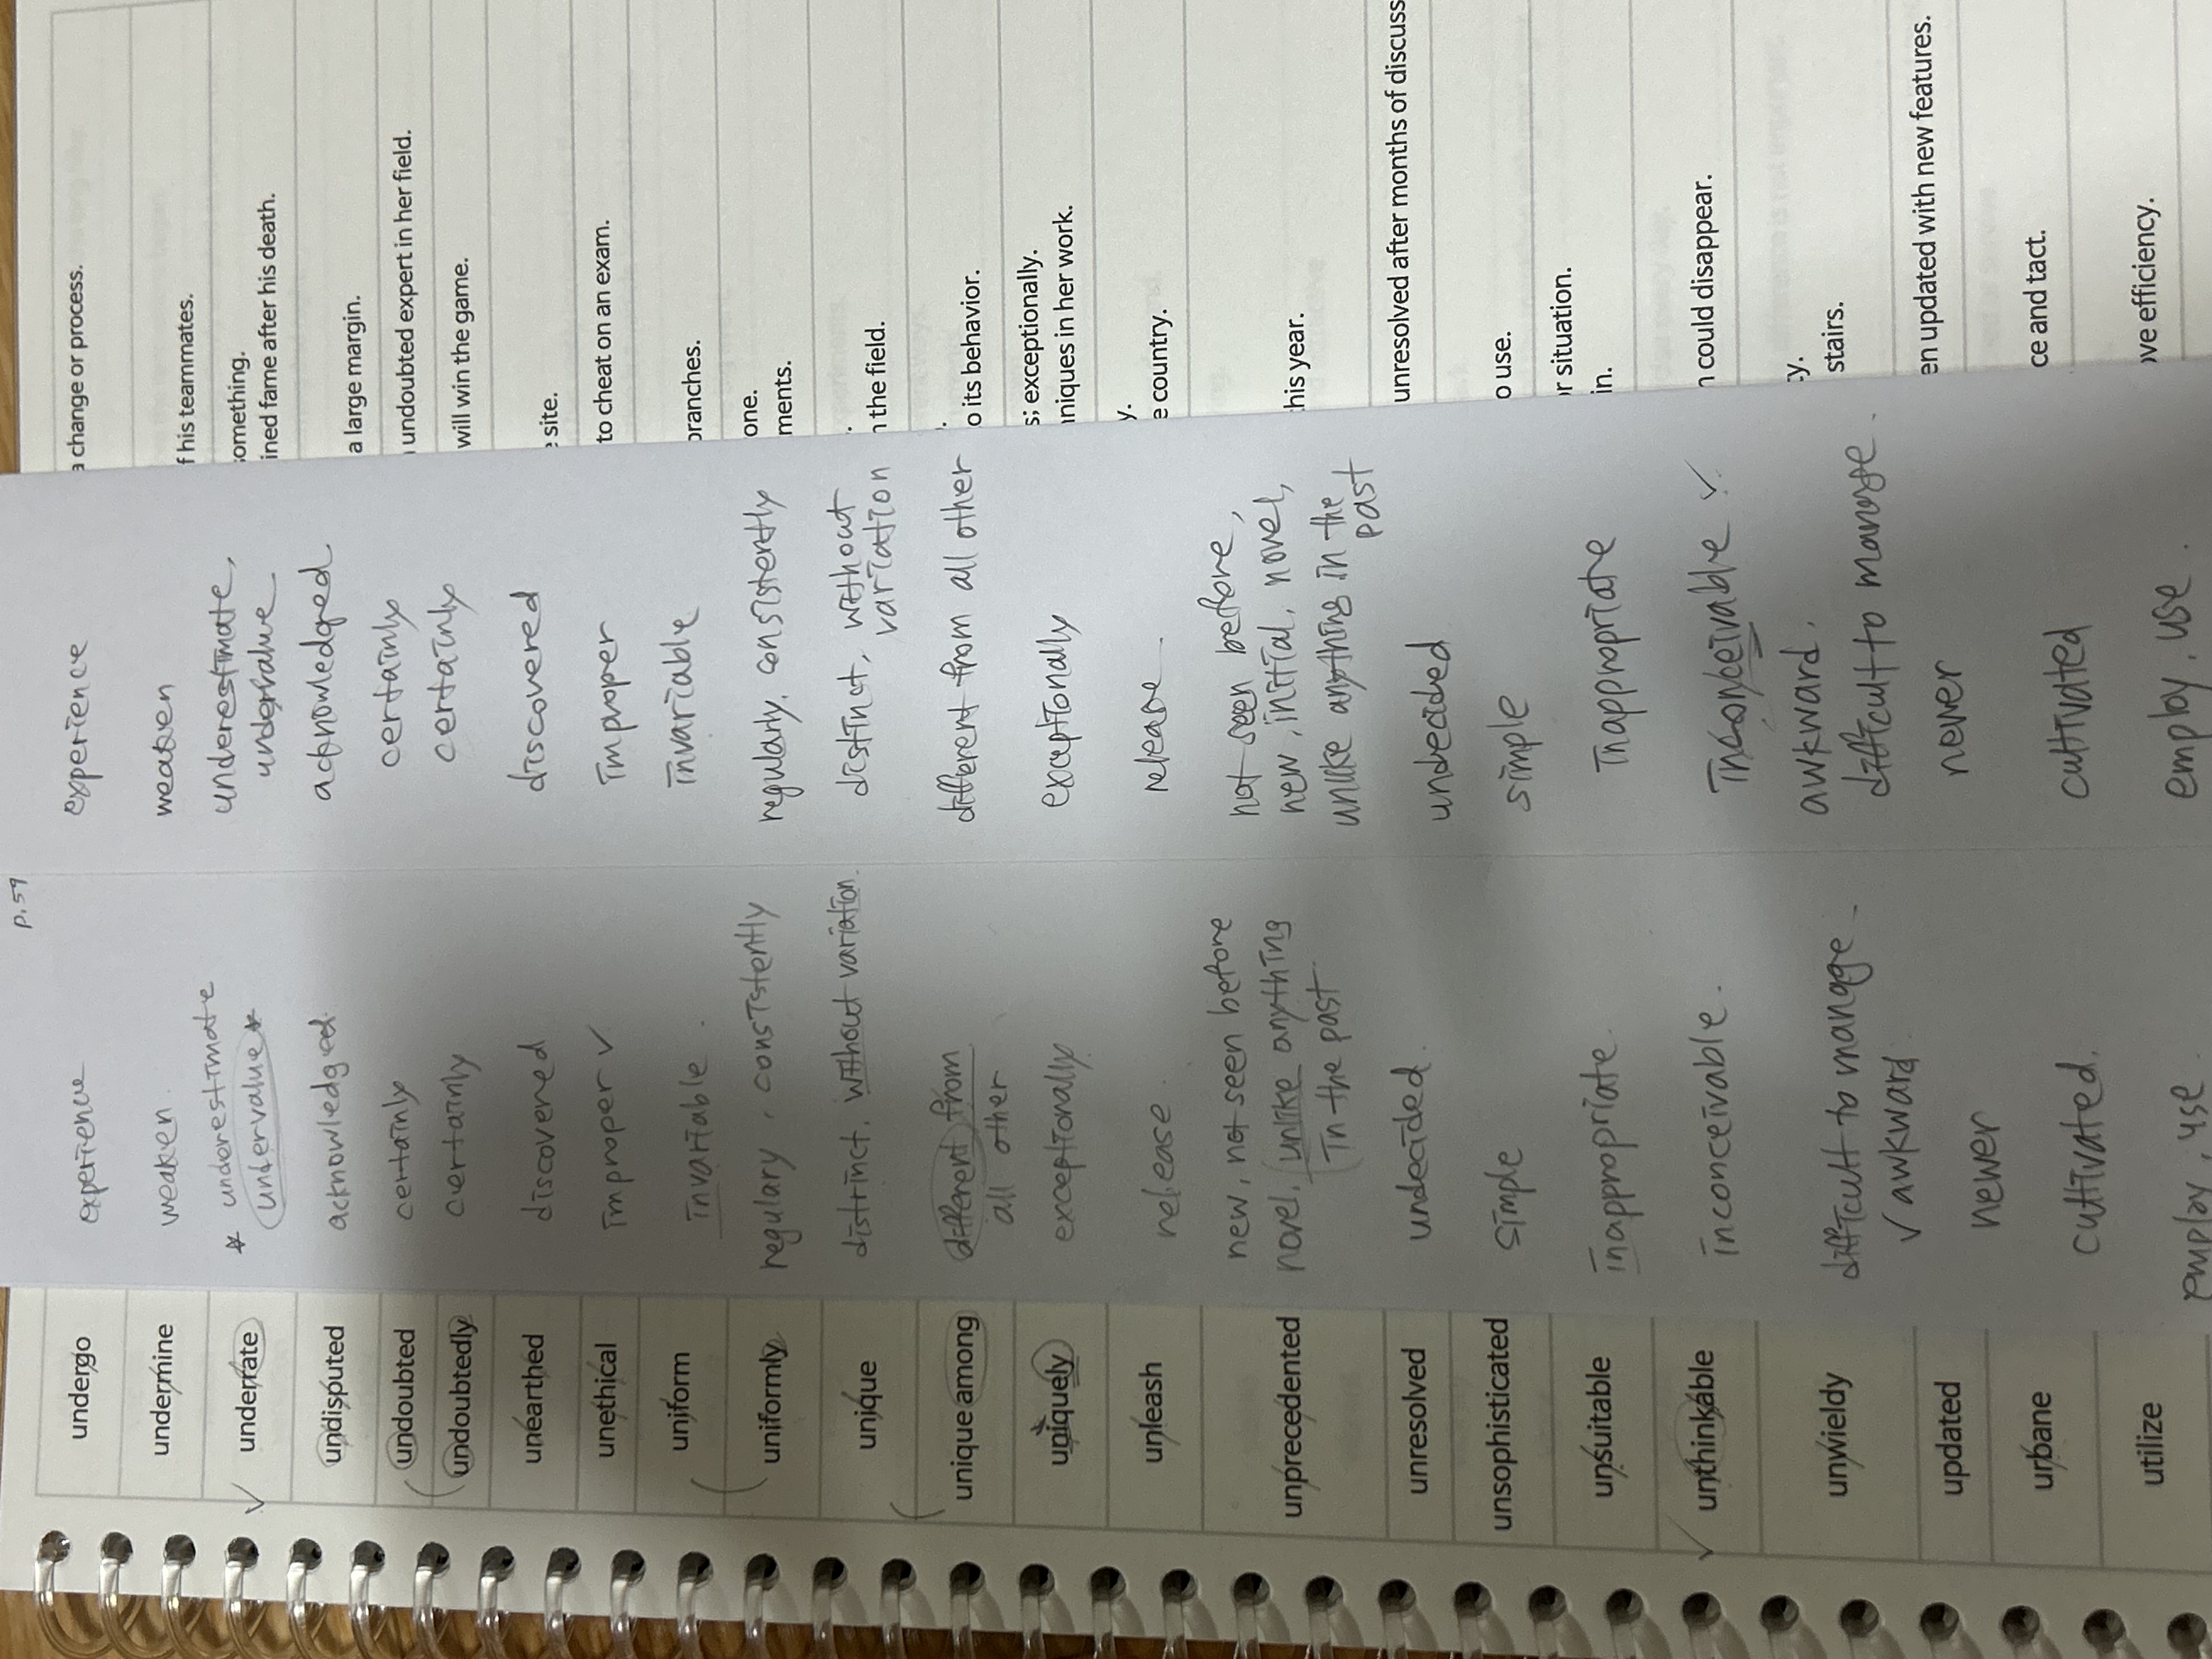 p.59
undergo
experience
experience
a change or process.
undermine
weaken
weaken
f his teammates.
underrate
* underestimate
undervalue *
underestimate,
undervalue
something.
ined fame after his death.
undisputed
acknowledged
acknowledged
a large margin.
undoubted
certainly
certainly
undoubted expert in her field.
undoubtedly
certainly
certainly
will win the game.
unearthed
discovered
discovered
site.
unethical
improper ✓
improper
to cheat on an exam.
uniform
invariable
invariable
branches.
uniformly
regulary, consistently
regularly, consistently
one.
ments.
unique
distinct, without variation.
distinct, without
variation
n the field.
unique among
different from
all other
different from all other
o its behavior.
uniquely
exceptionally
exceptionally
s; exceptionally.
niques in her work.
unleash
release
release.
y.
e country.
unprecedented
new, not seen before
novel, unlike anything
in the past
not seen before,
new, initial, novel,
unlike anything in the
past
his year.
unresolved
undecided.
undecided
unresolved after months of discuss
unsophisticated
simple
simple
o use.
unsuitable
inappropriate
inappropriate
r situation.
in.
unthinkable
inconceivable.
inconceivable ✓
n could disappear.
unwieldy
difficult to manage
✓ awkward
awkward.
difficult to manage.
cy.
stairs.
updated
newer
newer
en updated with new features.
urbane
cultivated.
cultivated
ce and tact.
utilize
employ, use
employ, use.
ve efficiency.